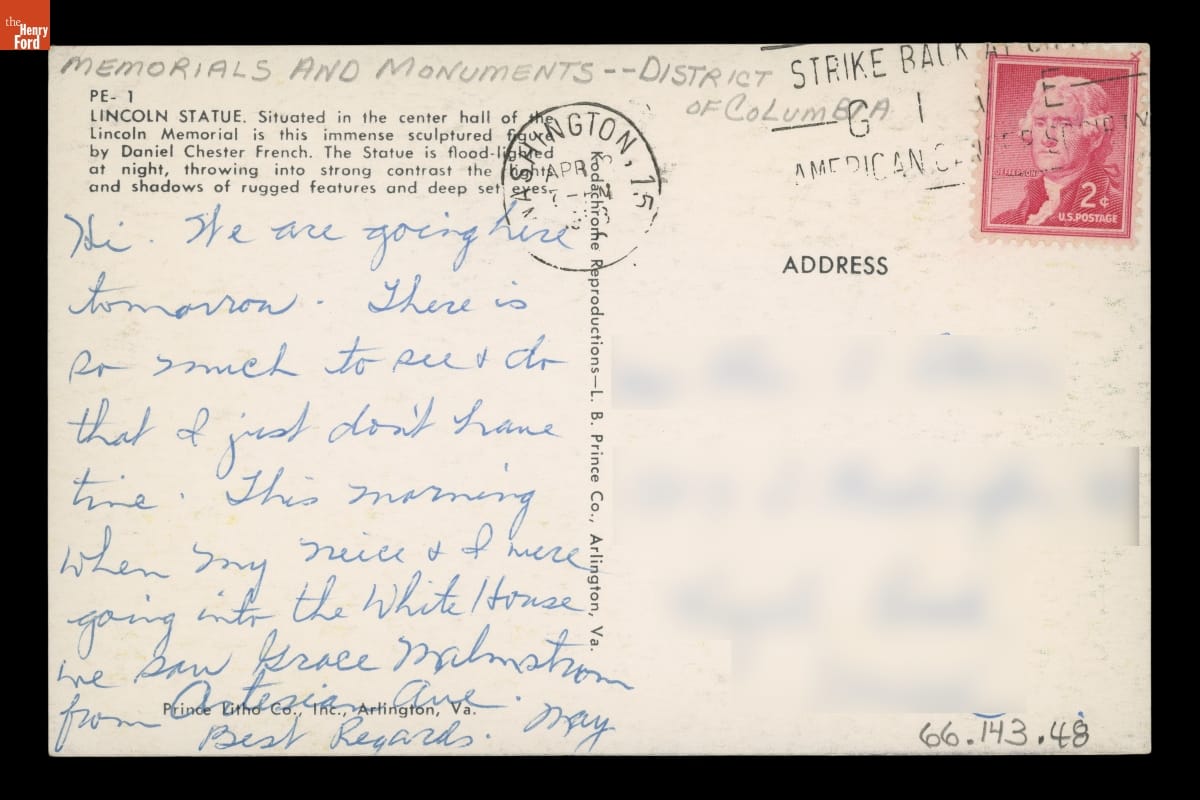 the
Henry
Ford
MEMORIALS AND MONUMENTS--DISTRICT
OF COLUMBIA
PE- 1
LINCOLN STATUE. Situated in the center hall of the
Lincoln Memorial is this immense sculptured figure
by Daniel Chester French. The Statue is flood-lighted
at night, throwing into strong contrast the lights
and shadows of rugged features and deep set eyes.
Hi. We are going here
tomorrow. There is
so much to see & do
that I just don't have
time. This morning
when my neice & I were
going into the White House
we saw Grace Malmstrom
from Artesian Ave.
Best Regards. May
Prince Litho Co., Inc., Arlington, Va.
Kodachrome Reproductions—L. B. Prince Co., Arlington, Va.
WASHINGTON, 15
APR
STRIKE BACK
AMERICAN SOCIETY
JEFFERSON
2¢
U.S. POSTAGE
ADDRESS
66.143.48